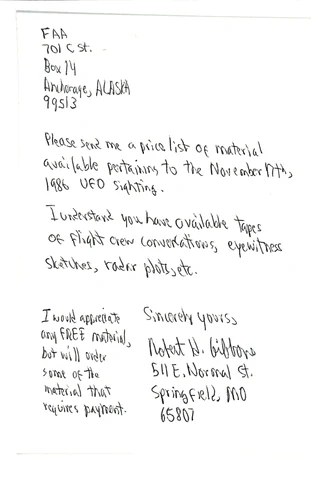 FAA
701 C St.
Box 14
Anchorage, ALASKA
99513
Please send me a price list of material
available pertaining to the November 17th,
1986 UFO sighting.
I understand you have available tapes
of flight crew conversations, eyewitness
sketches, radar plots, etc.
I would appreciate
any FREE material,
but will order
some of the
material that
requires payment.
Sincerely yours,
Robert H. Gibbons
511 E. Normal St.
Springfield, MO
65807